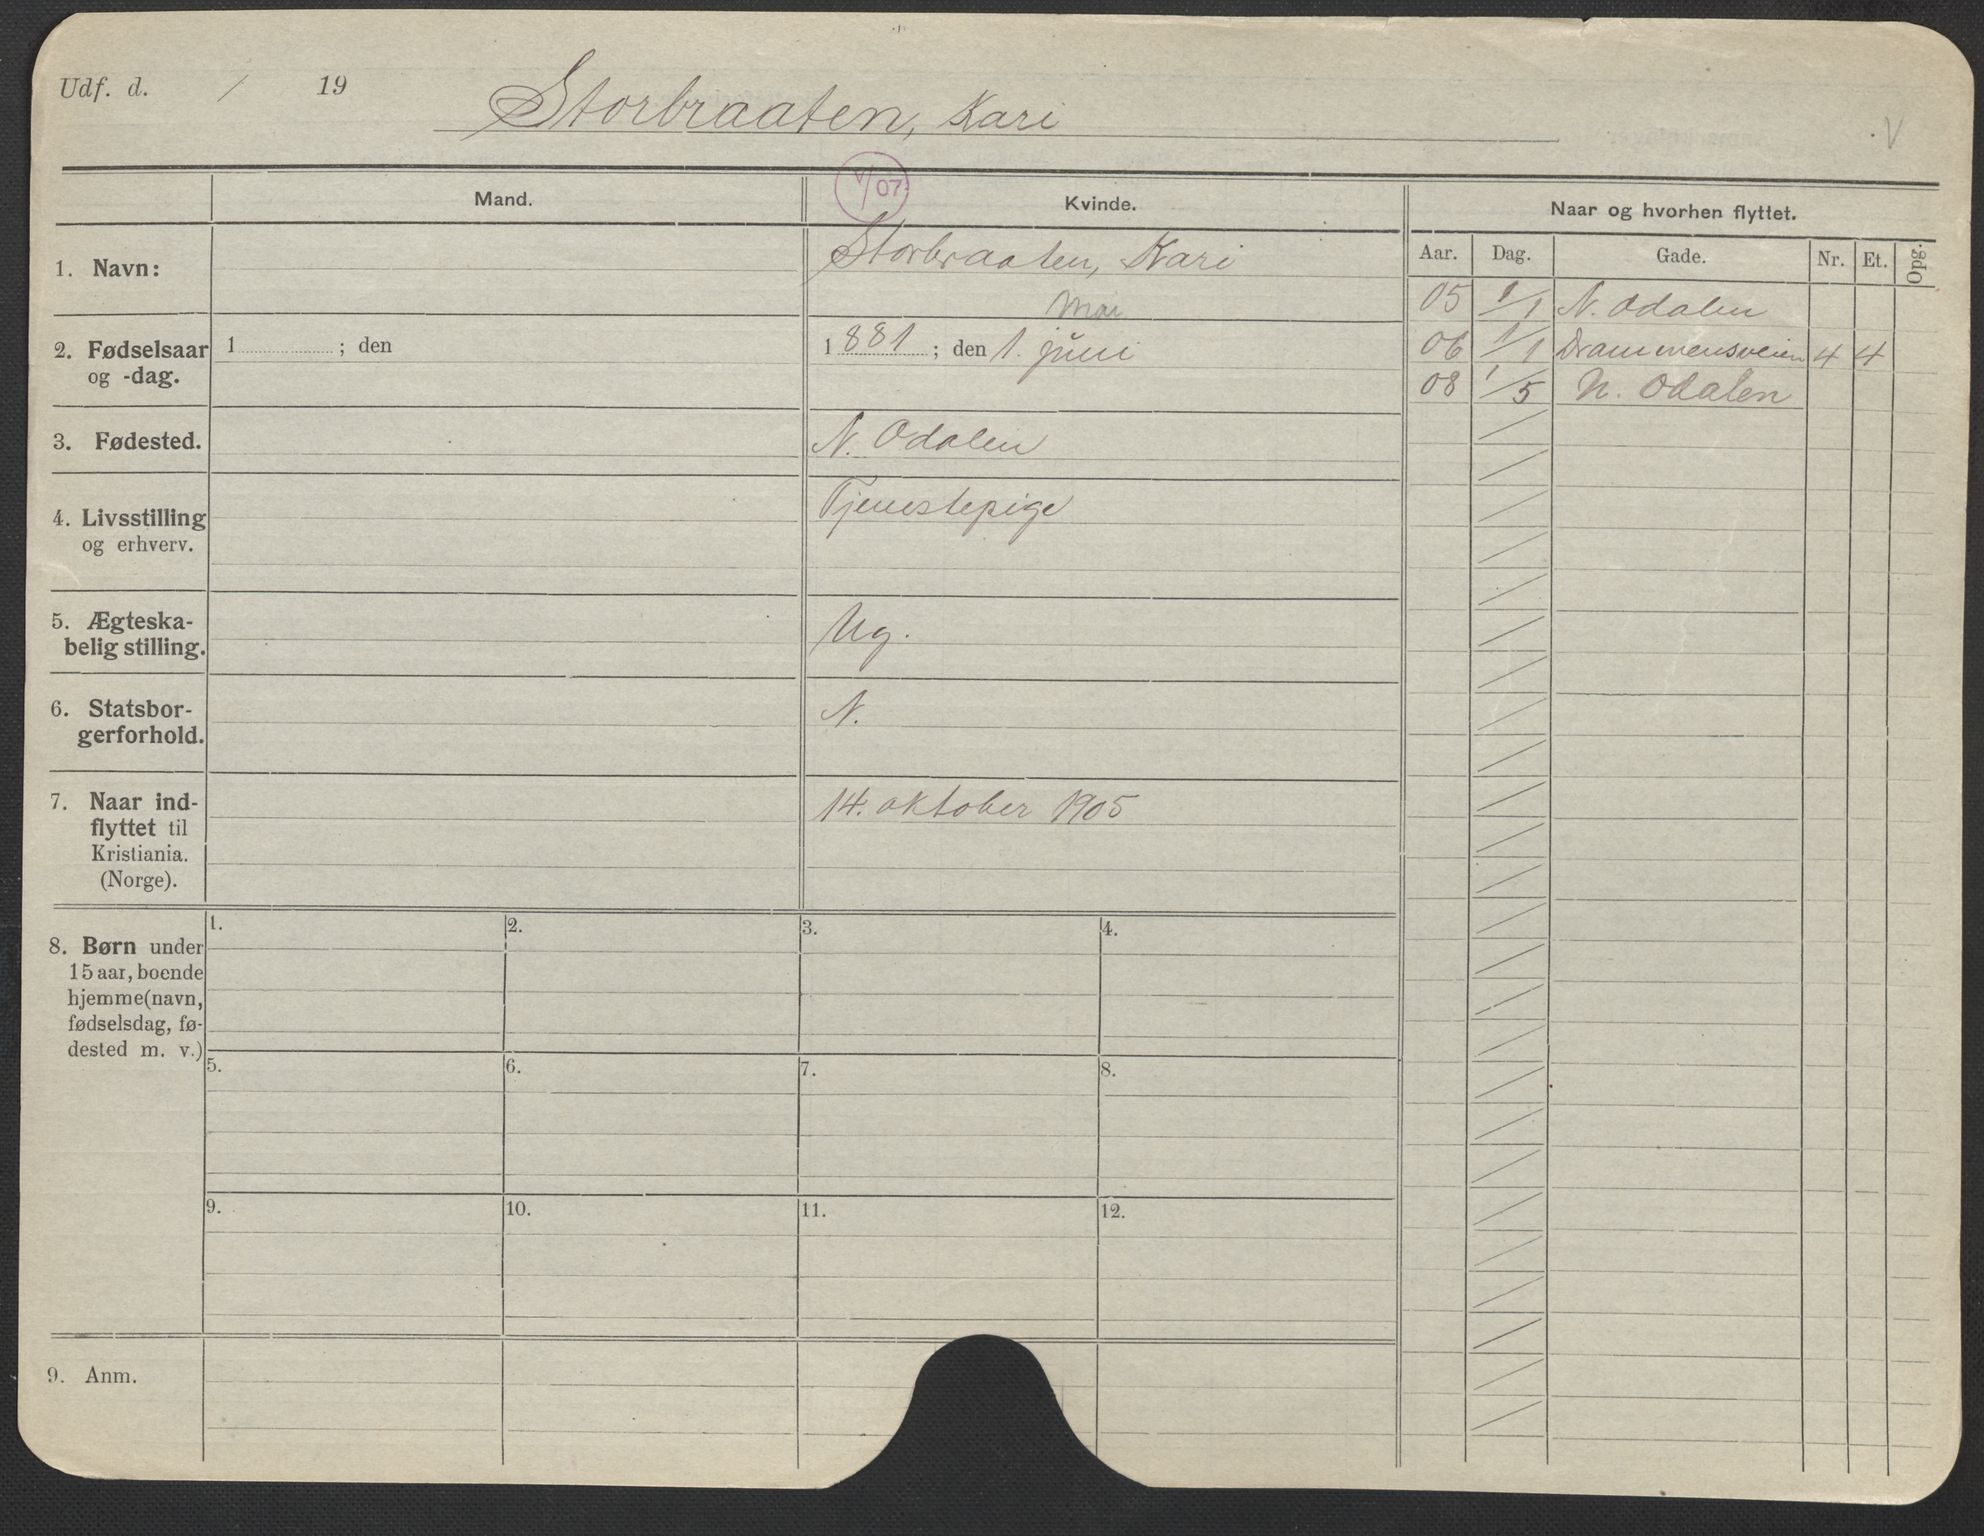 Udf. d. / 19
Storbraaten, Kari
V
Mand.
V/07.
Kvinde.
Naar og hvorhen flyttet.
Aar. Dag. Gade. Nr. Et. Opg.
1. Navn:
Storbraaten, Kari
05 1/1 N. Odalen
Mai
2. Fødselsaar
og -dag.
1 ; den
1881 ; den 1. juni
06 1/1 Drammensveien 4 4
08 1/5 N. Odalen
3. Fødested.
N. Odalen
4. Livsstilling
og erhverv.
Tjenestepige
5. Ægteska-
belig stilling.
Ug.
6. Statsbor-
gerforhold.
N.
7. Naar ind-
flyttet til
Kristiania.
(Norge).
14. oktober 1905
8. Børn under
15 aar, boende
hjemme (navn,
fødselsdag, fø-
dested m. v.)
1. 2. 3. 4.
5. 6. 7. 8.
9. 10. 11. 12.
9. Anm.